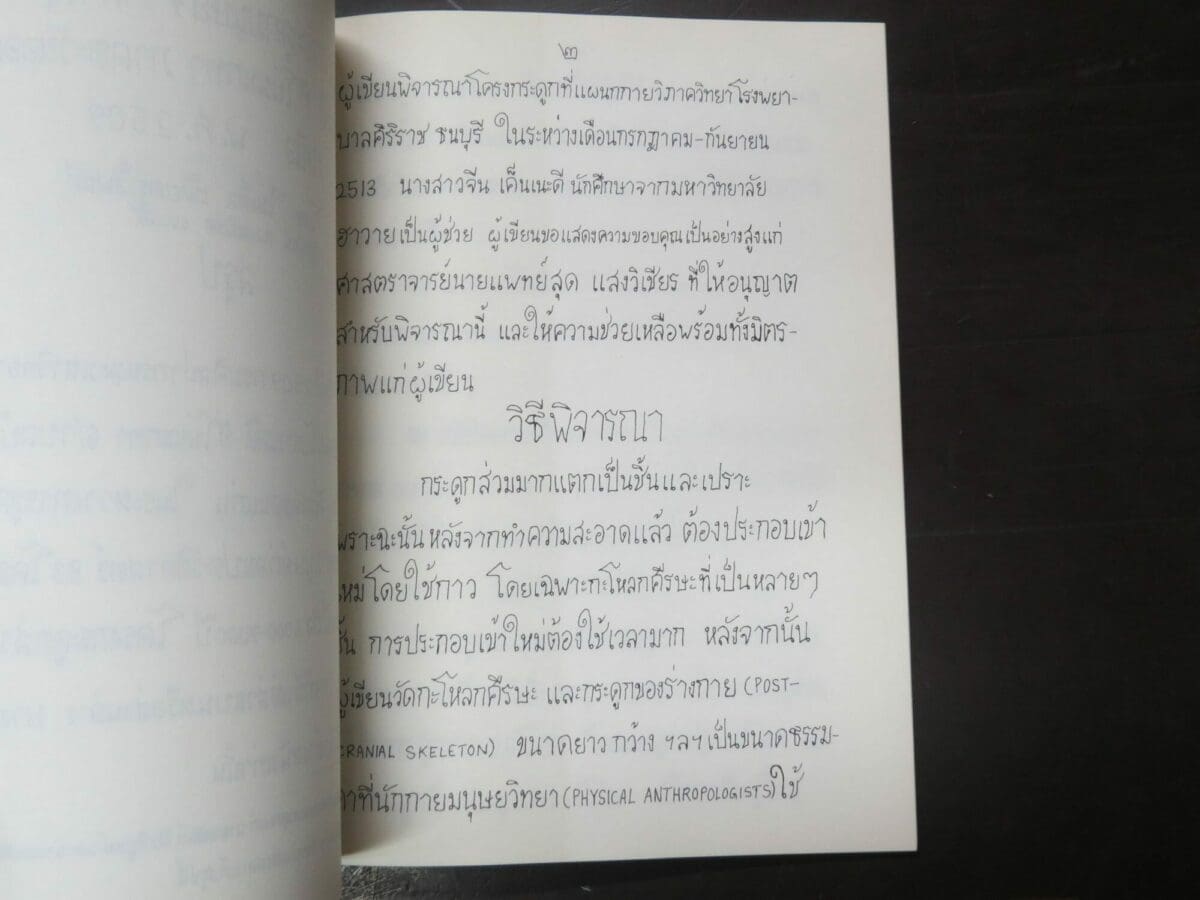 ๒
ผู้เขียนพิจารณาโครงกระดูกที่แผนกกายวิภาควิทยาโรงพยา-
บาลศิริราช ธนบุรี ในระหว่างเดือนกรกฎาคม-กันยายน
2513 นางสาวจีน เค็นเนะดี นักศึกษาจากมหาวิทยาลัย
ฮาวายเป็นผู้ช่วย ผู้เขียนขอแสดงความขอบคุณเป็นอย่างสูงแก่
ศาสตราจารย์นายแพทย์สุด แสงวิเชียร ที่ให้อนุญาต
สำหรับพิจารณานี้ และให้ความช่วยเหลือพร้อมทั้งมิตร-
ภาพแก่ผู้เขียน
วิธีพิจารณา
กระดูกส่วมมากแตกเป็นชิ้นและเปราะ
เพราะฉะนั้นหลังจากทำความสะอาดแล้ว ต้องประกอบเข้า
ใหม่โดยใช้กาว โดยเฉพาะกะโหลกศีรษะที่เป็นหลายๆ
ชิ้น การประกอบเข้าใหม่ต้องใช้เวลามาก หลังจากนั้น
ผู้เขียนวัดกะโหลกศีรษะ และกระดูกของร่างกาย (POST-
CRANIAL SKELETON) ขนาดยาว กว้าง ฯลฯ เป็นขนาดธรรม-
ดาที่นักกายมนุษยวิทยา (PHYSICAL ANTHROPOLOGISTS) ใช้